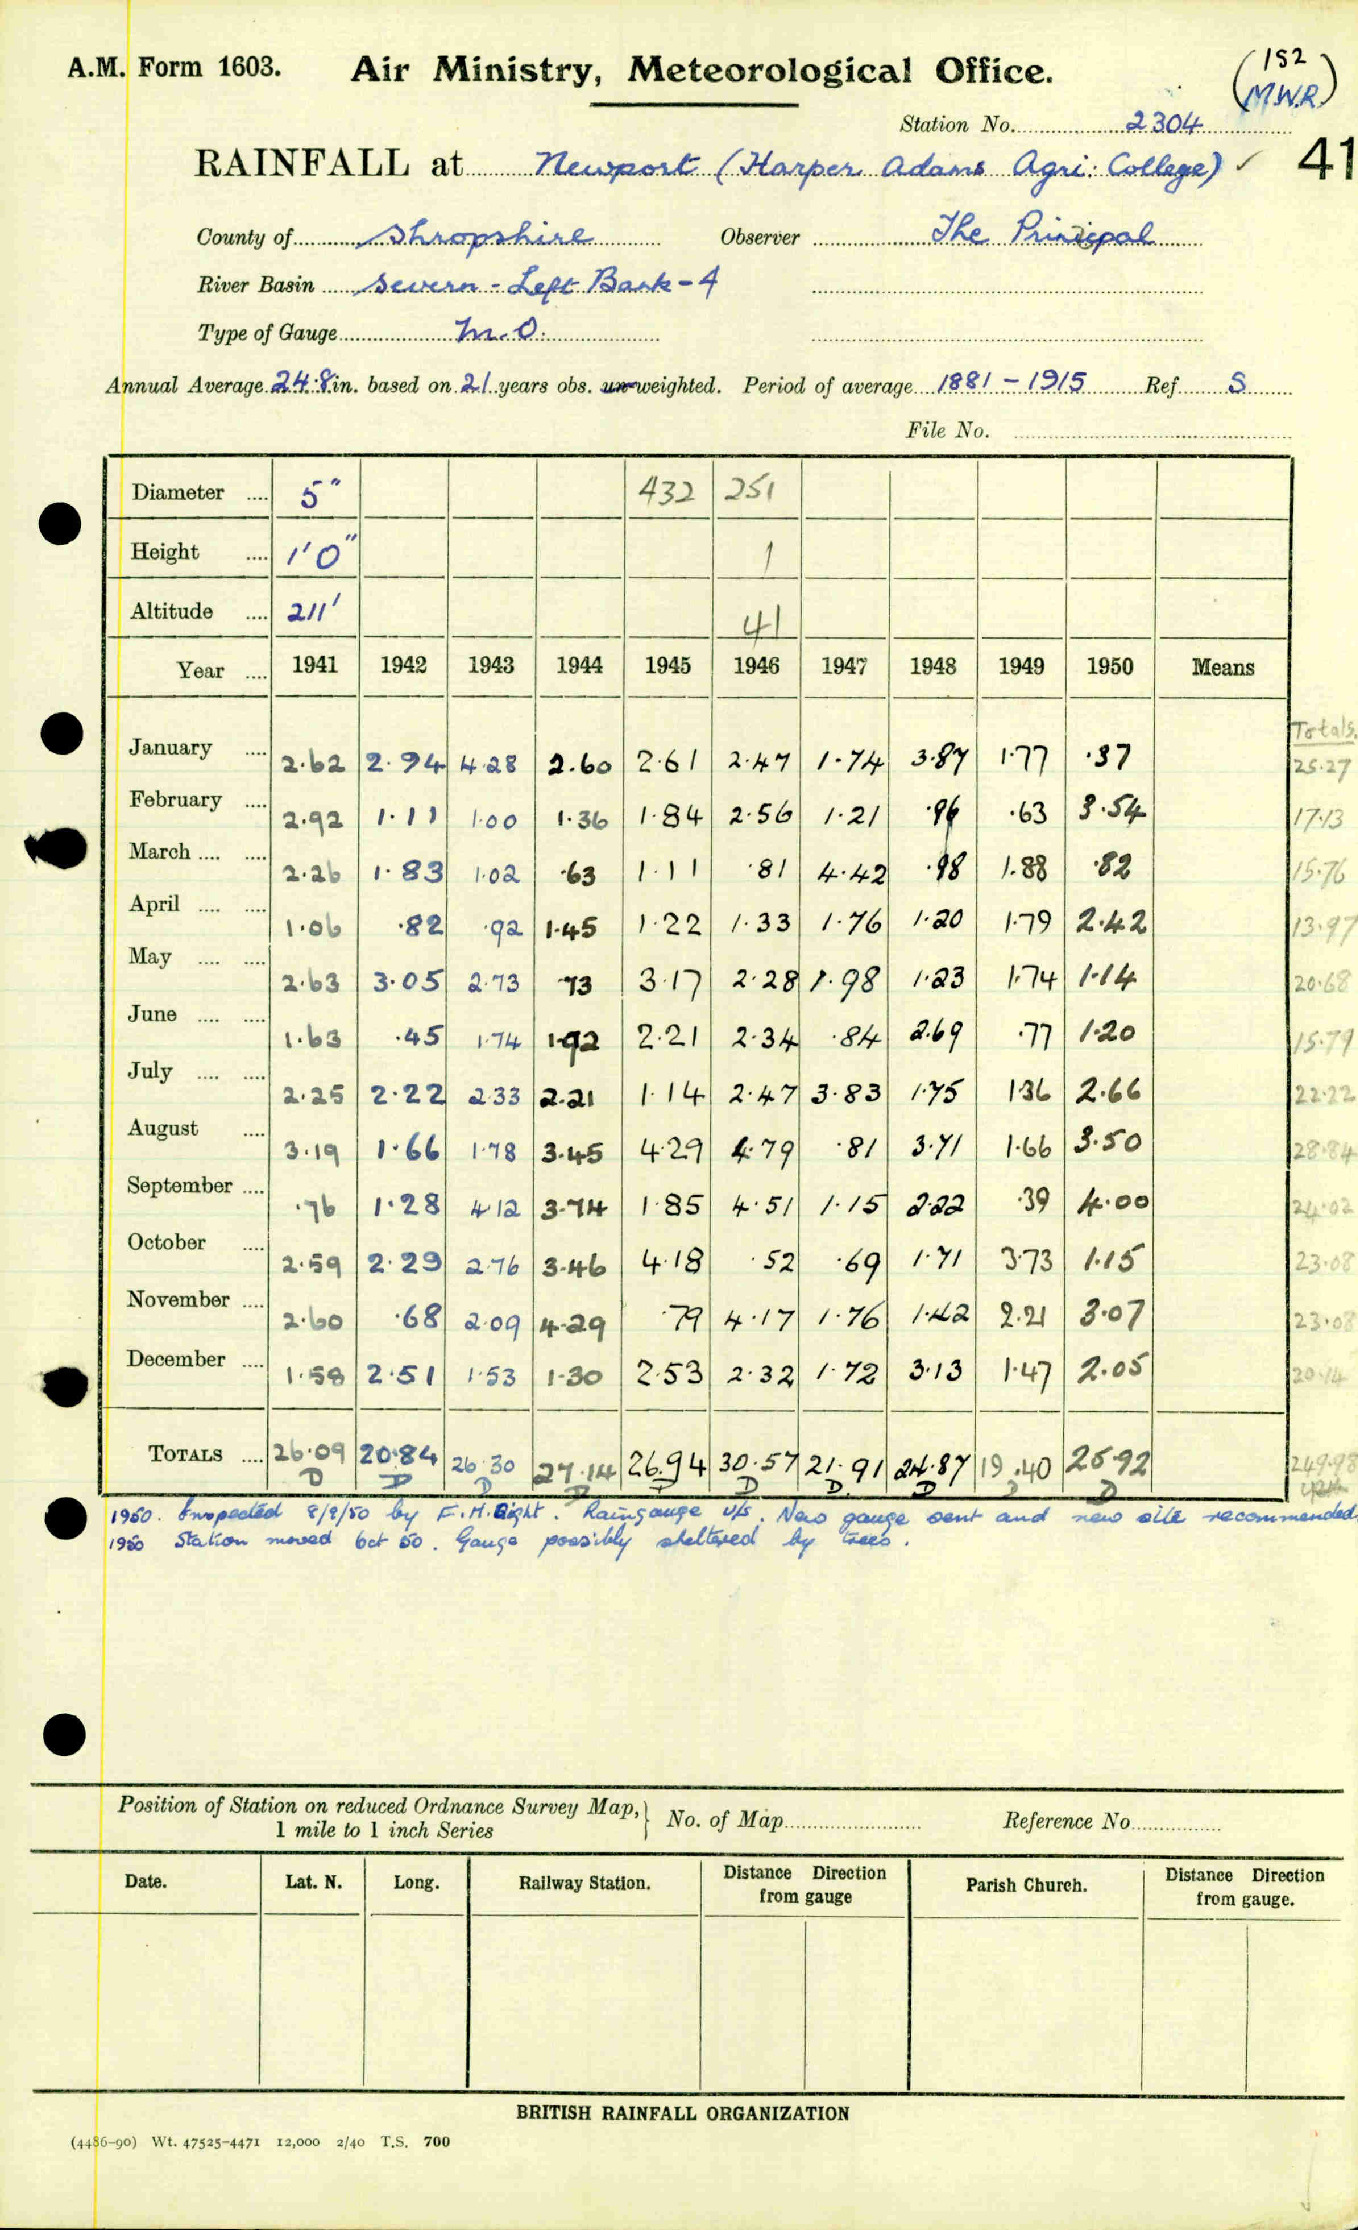 A.M. Form 1603. Air Ministry, Meteorological Office. (152 M.W.R.)
Station No. 2304
RAINFALL at Newport (Harper Adams Agri: College) ✓ 41
County of Shropshire Observer The Principal
River Basin Severn - Left Bank - 4
Type of Gauge M.O.
Annual Average 24.8 in. based on 21 years obs. un-weighted. Period of average 1881 - 1915 Ref. S
File No.
Diameter .... 5" 432 251
Height .... 1'0" 1
Altitude .... 211' 41
Year .... 1941 1942 1943 1944 1945 1946 1947 1948 1949 1950 Means
Totals.
January .... 2.62 2.94 4.28 2.60 2.61 2.47 1.74 3.87 1.77 .37 25.27
February .... 2.92 1.11 1.00 1.36 1.84 2.56 1.21 .96 .63 3.54 17.13
March .... .... 2.26 1.83 1.02 .63 1.11 .81 4.42 .98 1.88 .82 15.76
April .... .... 1.06 .82 .92 1.45 1.22 1.33 1.76 1.20 1.79 2.42 13.97
May .... .... 2.63 3.05 2.73 .73 3.17 2.28 1.98 1.23 1.74 1.14 20.68
June .... .... 1.63 .45 1.74 1.92 2.21 2.34 .84 2.69 .77 1.20 15.79
July .... .... 2.25 2.22 2.33 2.21 1.14 2.47 3.83 1.75 1.36 2.66 22.22
August .... 3.19 1.66 1.78 3.45 4.29 4.79 .81 3.71 1.66 3.50 28.84
September .... .76 1.28 4.12 3.74 1.85 4.51 1.15 2.22 .39 4.00 24.02
October .... 2.59 2.29 2.76 3.46 4.18 .52 .69 1.71 3.73 1.15 23.08
November .... 2.60 .68 2.09 4.29 .79 4.17 1.76 1.42 2.21 3.07 23.08
December .... 1.58 2.51 1.53 1.30 2.53 2.32 1.72 3.13 1.47 2.05 20.14
TOTALS .... 26.09 20.84 26.30 27.14 26.94 30.57 21.91 24.87 19.40 25.92 249.98
D D D D D D D D D D
1950. Inspected 8/9/50 by F.H. . Raingauge u/s. New gauge sent and new site recommended
1950 Station moved Oct 50. Gauge possibly sheltered by trees.
Position of Station on reduced Ordnance Survey Map, } No. of Map Reference No.
1 mile to 1 inch Series
Date. Lat. N. Long. Railway Station. Distance Direction from gauge Parish Church. Distance Direction from gauge.
BRITISH RAINFALL ORGANIZATION
(4486-90) Wt. 47525-4471 12,000 2/40 T.S. 700